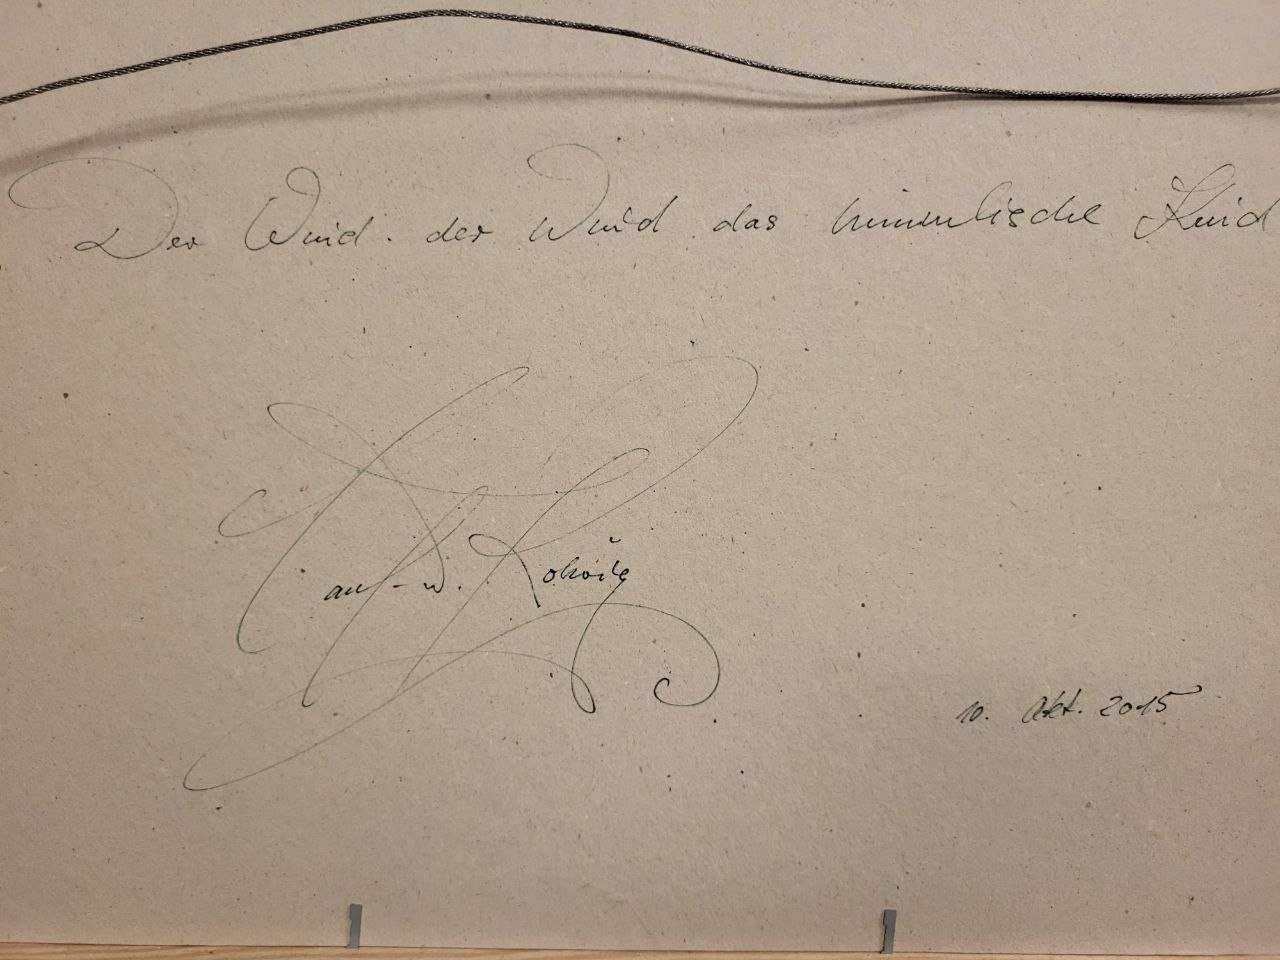 Der Wind. der Wind das himmlische Kind
10. Okt. 2015